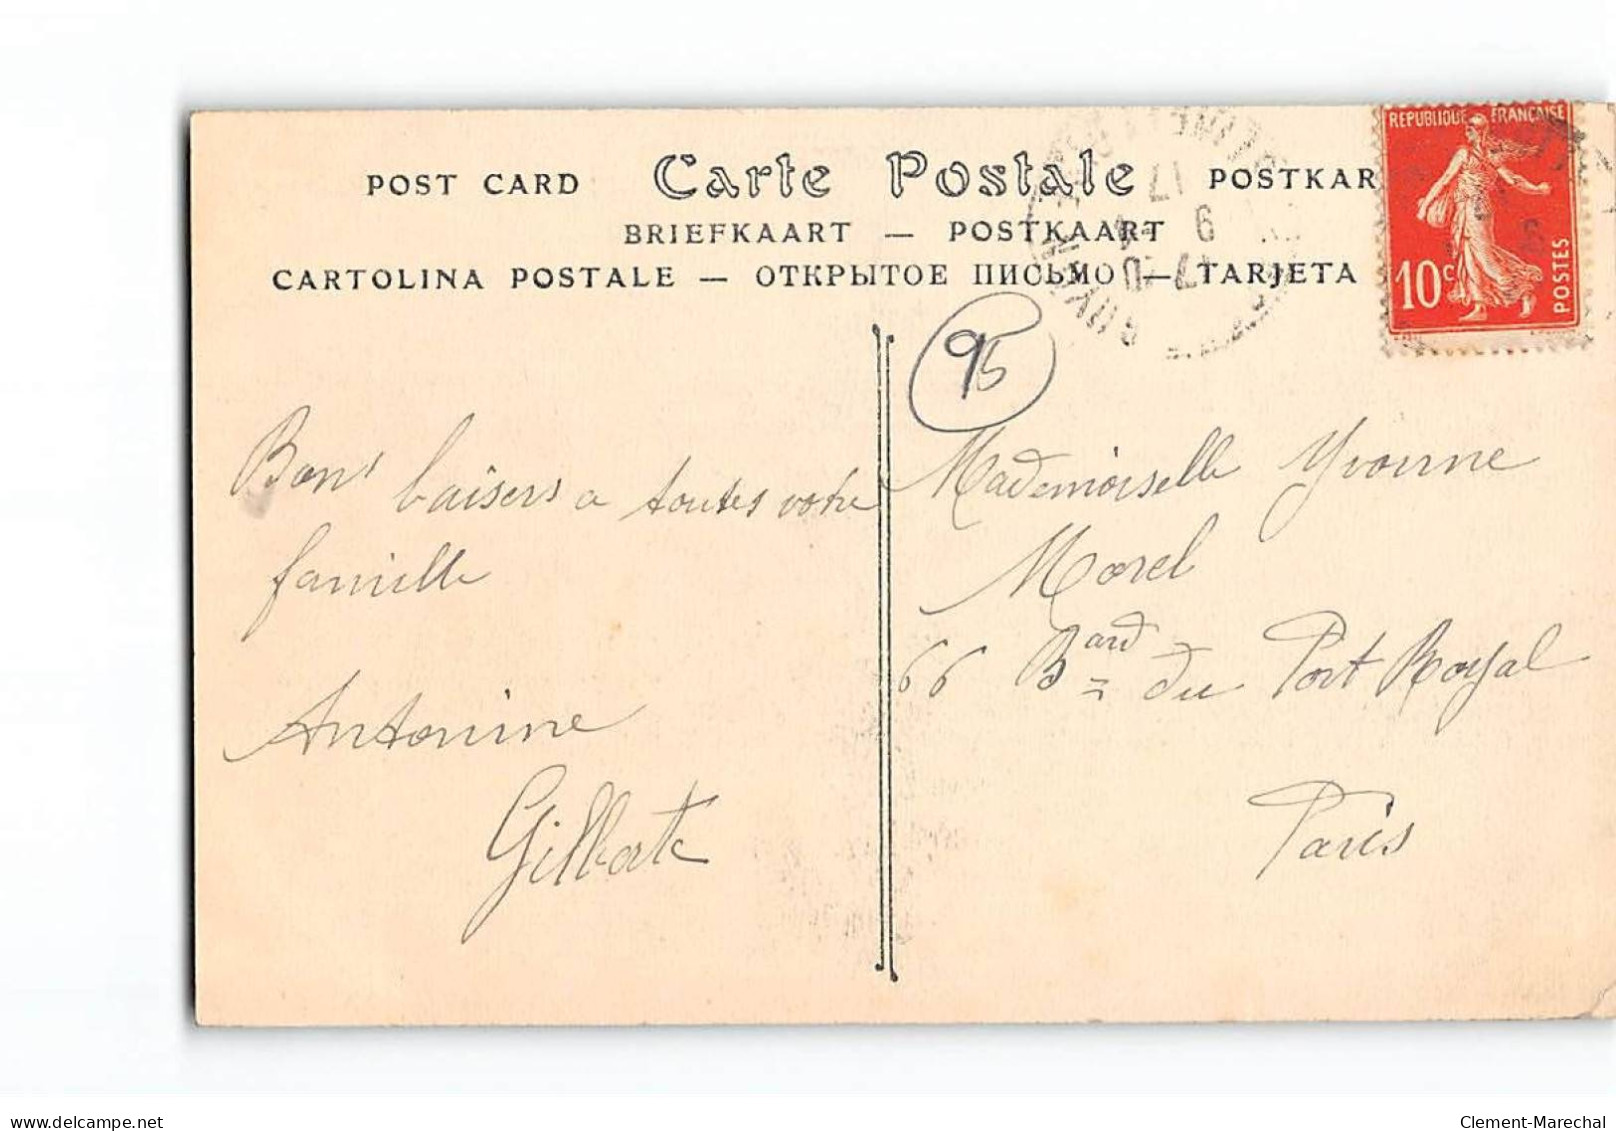 POST CARD Carte Postale POSTKAR
BRIEFKAART — POSTKAART
CARTOLINA POSTALE — ОТКРЫТОЕ ПИСЬМО — TARJETA
REPUBLIQUE FRANÇAISE
10c POSTES
17
9
17
95
Bons baisers a toutes votre
famille
Antonine
Gilberte
Mademoiselle Yvonne
Morel
66 Bard du Port Royal
Paris
delcampe.net
Clement-Marechal